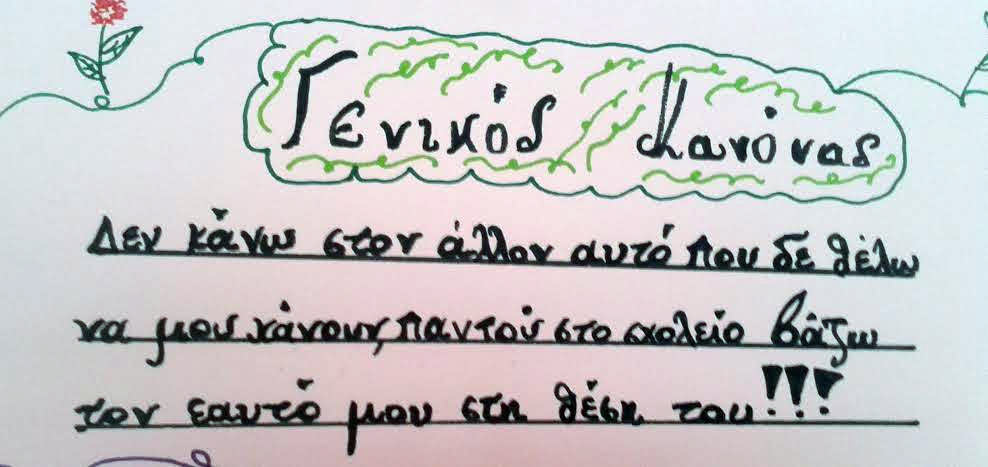 Γενικός Κανόνας
Δεν κάνω στον άλλον αυτό που δε θέλω
να μου κάνουν, παντού στο σχολείο βάζω
τον εαυτό μου στη θέση του!!!